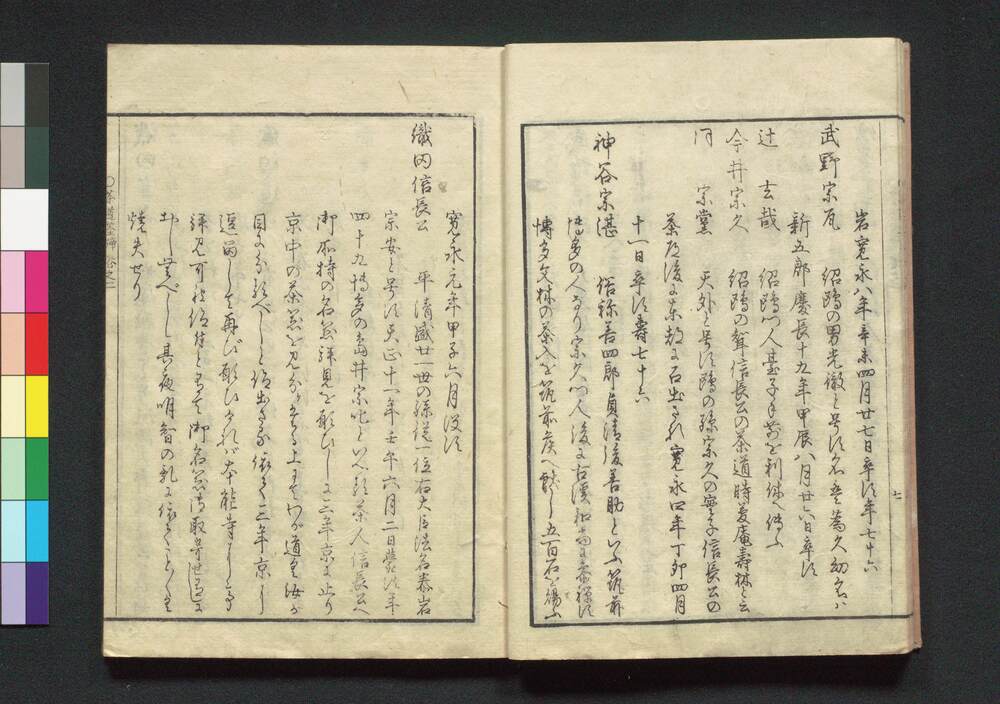 岩寛永八年辛未四月廿七日卒す年七十六
武野宗瓦　紹鴎の男光徹と号す名は為久幼名ハ
新五郎慶長十九年甲辰八月廿六日卒す
辻　玄哉　紹鴎門人臺子手前を利休へ傳ふ
今井宗久　紹鴎の聟信長公の茶道時薆庵壽林と云
同　宗薫　天外と号す鴎の孫宗久の実子信長公の
茶道後に東都に石出され寛永四年丁卯四月
十一日卒す壽七十六
神谷宗湛　俗称善四郎貞清後善助といふ筑前
博多の人なり宗久門人後に古溪和尚に参禅す
博多文林の茶入を筑前侯へ献し五百石を賜ふ
七
寛永元年甲子六月没す
織田信長公　平清盛廿一世の孫従一位右大臣法名泰岩
宗安と号す天正十一年壬午六月二日薨す年
四十九博多の島井宗叱といへる茶人信長公へ
御所持の名器拝見を願ひしに二年京に止り
京中の茶器を見尽すへし上にてわか道具汝か
目に余るへしと仰出さる依て三年京に
逗留して再ひ願ひけれハ本能寺にて
拝見可被仰付とありて御名器御取寄せ
ありし其夜明智の乱に依てことごとく
焼失せり